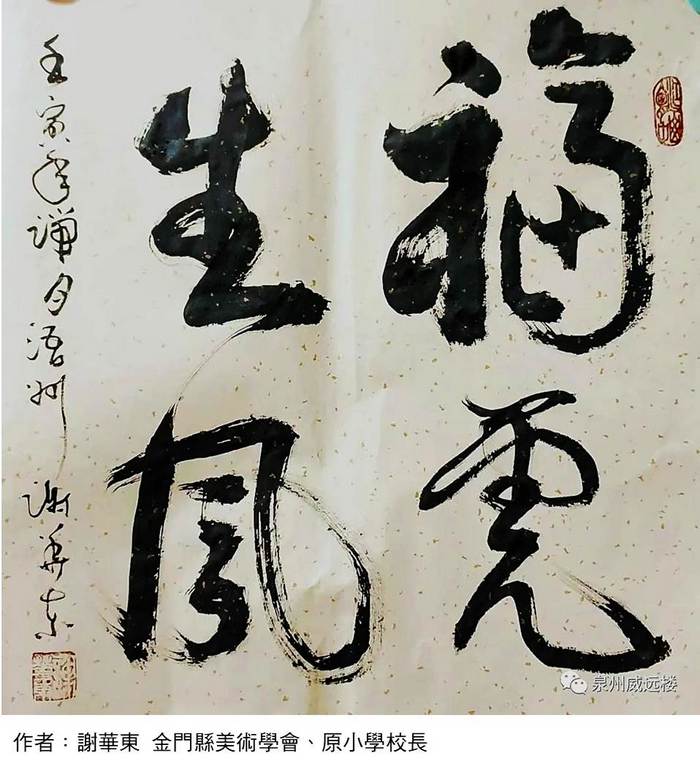 福虎
生風
壬寅年蟬月浯州 謝華東
泉州威远楼
作者：謝華東 金門縣美術學會、原小學校長